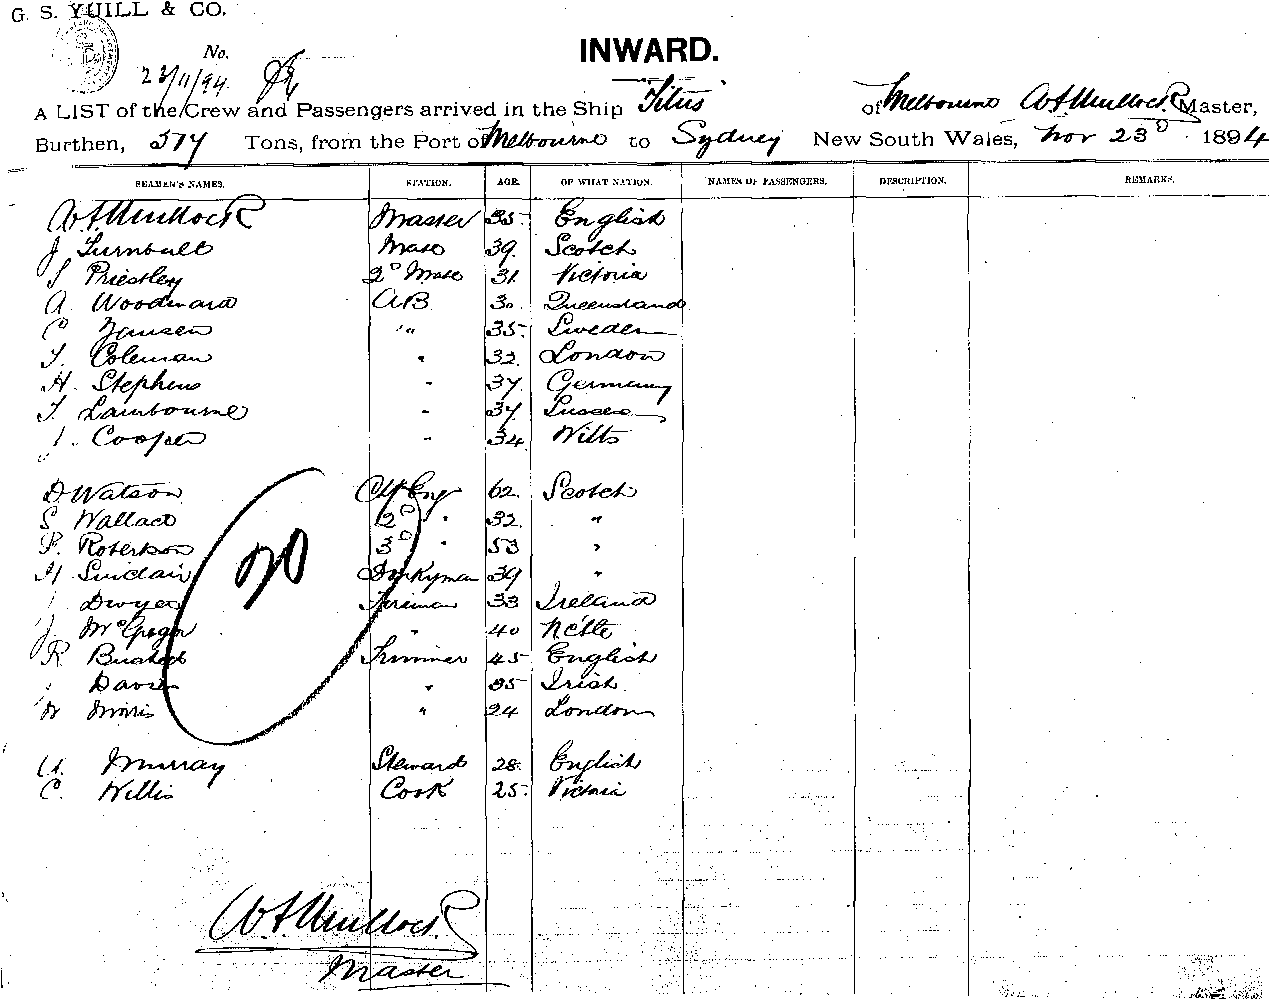 G. S. YUILL & CO.
No.
INWARD.
23/11/94
A LIST of the Crew and Passengers arrived in the Ship Titus of Melbourne W F Mullock Master,
Burthen, Tons, from the Port of Melbourne to Sydney New South Wales, Nov 23D 1894
SEAMEN'S NAMES. STATION. AGE. OF WHAT NATION. NAMES OF PASSENGERS. DESCRIPTION. REMARKS.
W F Mullock Master 35 English
J Turnbull Mate 39 Scotch
S Priestley 2D Mate 31 Victoria
A. Woodward AB 30 Queensland
C Jansen " 35 Sweden
T. Coleman " 32 London
H. Stephens " 37 Germany
T. Lambourne " 37 Sussex
J. Cooper " 34 Wilts
D Watson Ch Eng 62 Scotch
S Wallace 2D " 32 "
P. Robertson 3D " 53 "
H Sinclair Donkyman 39 "
Dwyer Fireman 33 Ireland
J McGregor " 40
R Trimmer 45 English
Davies " 35 Irish
W Morris " 24 London
20
A. Murray Steward 28 English
C. Willis Cook 25 Victoria
W. F. Mullock
Master